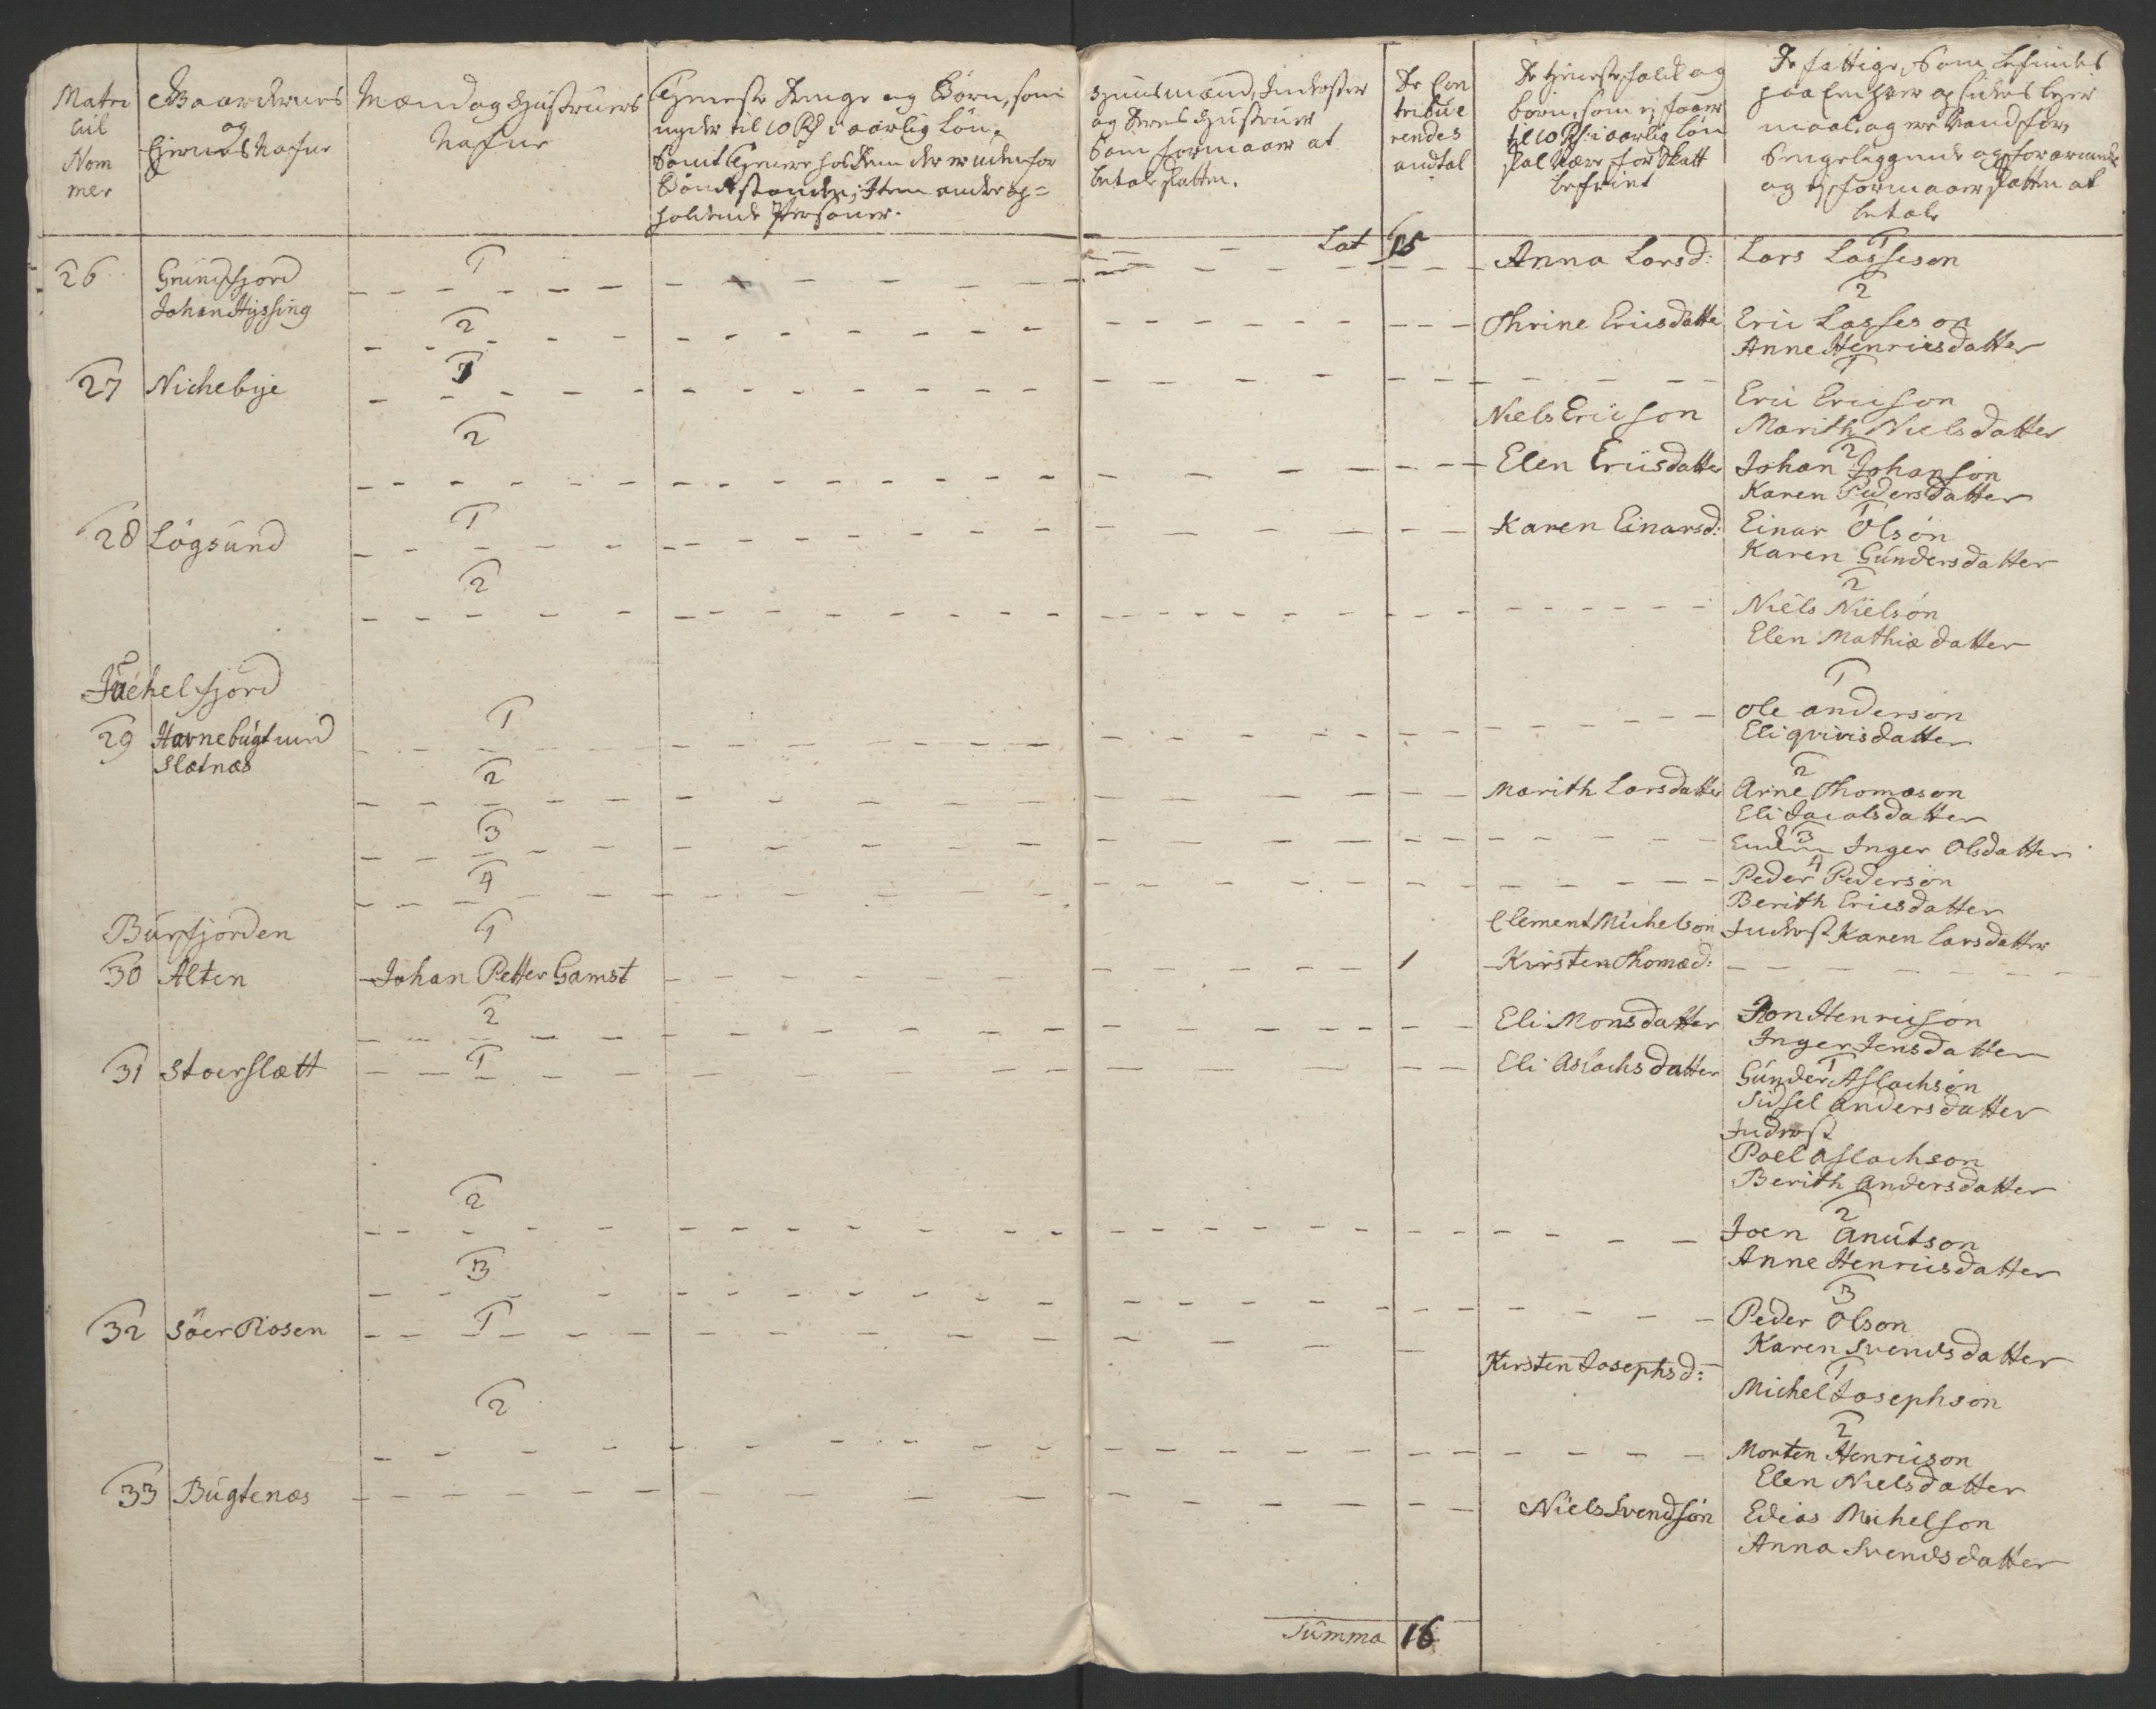 Matri
cul
Nom
mer
Gaardernes
og
Eiernes Nafne
Mænd og Hustruers
Nafne
Tieneste Drenge og Børn, som
nyder til 10 Rd i aarlig Løn,
Samt Tienere hos dem der er udenfor
Bondestanden; Item andre op-
holdende Persøner.
Huusmænd, Inderster
og deres Hustruer
Som formaaer at
betale skatten.
De Con
tribue
rendes
andtal
De tieneste folck og
børn, som ej faaer
til 10 Rd: i aarlig Løn
skal være for Skatt
befriet
De fattige, Som befindes
paa Een hver op sidders leye
maal, og ere vanføre,
Sengeliggende og forarmede
og ej formaaer skatten at
betale
Lat 15
26 Grundfjord 1 Anna Larsd: 1 Lars Lasseson
Johan Hyssing
2 Thrine Ericsdatter 2 Eric Lasseson
Anne Henricsdatter
27 Nichebye 1 1 Eric Ericson
Niels Ericson Marith Nielsdatter
2 Elen Ericsdatter 2 Johan Johanson
Karen Pedersdatter
28 Løgsund 1 Karen Einarsd: 1 Einar Olsøn
Karen Gundersdatter
2 2
Niels Nielsøn
Elen Mathiædatter
Jøchelfjord 1
29 Havnebugt und 1 Ole anderson
Slætnæs Eli qvivisdatter
2 Marith Larsdatter 2 Arne Thomæson
Eli Jacobsdatter
3 3 Encken Inger Olsdatter
4 4 Peder Pederson
Berith Ericsdatter
Burfjorden 1 Clement Michelson Inderst Karen Larsdatter
30 Alten Johan Petter Gamst 1 Kirsten Thomæd:
2 Eli Monsdatter Jon Henricson
Inger Jensdatter
31 Stoerslætt 1 Eli Aslachsdatter 1 Gunder Aslachsøn
Sidsel andersdatter
Inderst
Poel Aslachson
Berith Andersdatter
2 2
Joen Anutson
Anne Henricsdatter
3 3
Peder Olson
32 Söer Rosen 1 Karen Svendsdatter
Kirsten Josephsd: 1 Michel Josephson
2 2
Morten Henricson
Elen Nielsdatter
33 Bugtenæs Niels Svendsøn Edias Michelson
Anna Svendsdatter
Summa 16